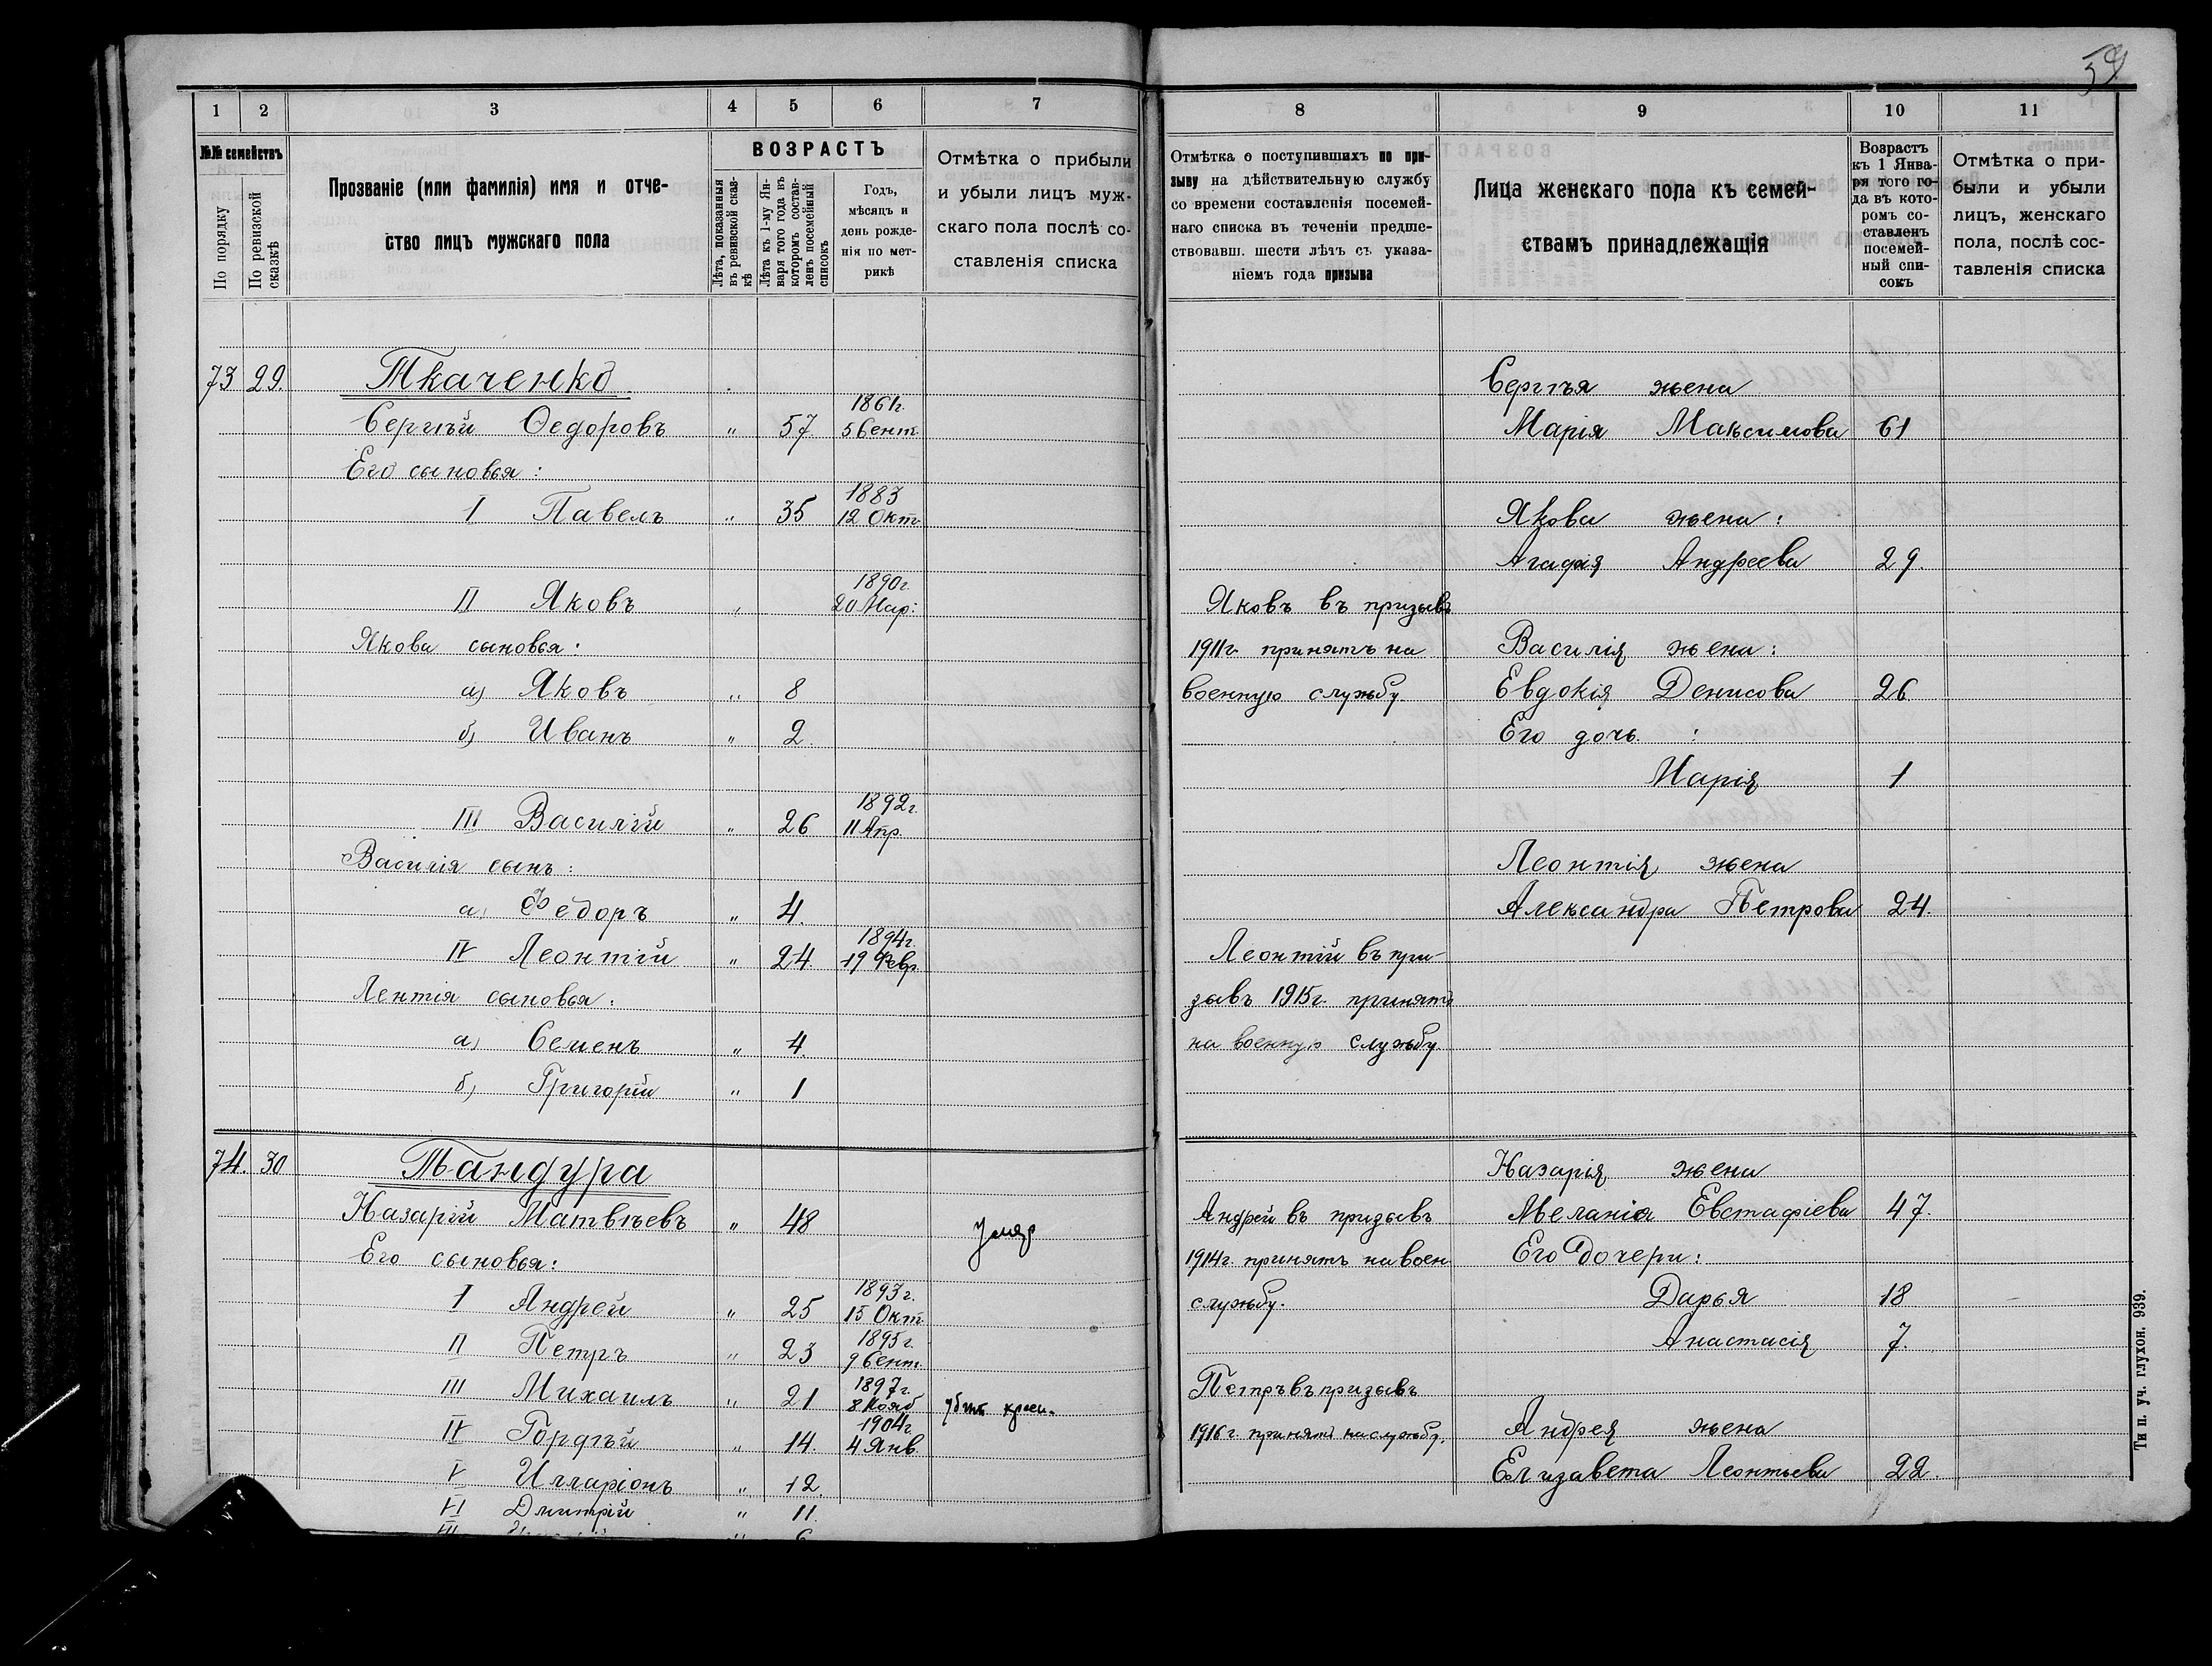 59
1 2 3 4 5 6 7
№№ семействъ
По порядку
По ревизской сказкѣ
Прозваніе (или фамилія) имя и отче-
ство лицъ мужскаго пола
ВОЗРАСТЪ
Лѣта, показанныя въ ревизской сказ-кѣ
Лѣта къ 1-му Ян-варя того года въ которомъ состав-ленъ посемейный списокъ
Годъ,
мѣсяцъ и
день рожде-
нія по мет-
рикѣ
Отмѣтка о прибыли
и убыли лицъ муж-
скаго пола послѣ со-
ставленія списка
73 29. Ткаченко
Сергѣй Ѳедоровъ " 57. 1861г. 5 Сент.
Его сыновья:
I Павелъ " 35 1883 12 Окт.
II Яковъ " 1890г. 20 Мар:
Якова сыновья:
а) Яковъ " 8
б) Иванъ " 2
III Василій " 26 1892г. 11 Апр.
Василія сынъ:
а) Федоръ " 4.
IV Леонтій " 24 1894г. 19 Февр.
Лентія сыновья:
а) Семенъ " 4.
б) Григорій " 1
74. 30 Тандура
Назарій Матвѣевъ " 48
Его сыновья:
I Андрей " 25 1893г. 15 Окт.
II Петръ " 23 1895г. 9 Сент.
III Михаилъ " 21 1897г. 8 Нояб.
IV Гордѣй " 14. 1904г. 4 Янв.
V Илларіонъ " 12.
VI Дмитрій " 11.
8 9 10 11
Отмѣтка о поступившихъ по при-
зыву на дѣйствительную службу
со времени составленія посемей-
наго списка въ теченіи предше-
ствовавш. шести лѣтъ съ указа-
ніемъ года призыва
Лица женскаго пола къ семей-
ствамъ принадлежащія
Возрастъ
къ 1 Янва-
ря того го-
да въ кото-
ромъ со-
ставленъ
посемей-
ный спи-
сокъ
Отмѣтка о при-
были и убыли
лицъ, женскаго
пола, послѣ сос-
тавленія списка
Сергѣя жена
Марія Максимова 61
Якова жена:
Агафія Андреева 29.
Яковъ въ призывъ
1911г. принятъ на Василія жена:
военную службу. Евдокія Денисова 26
Его дочь :
Марія 1
Леонтія жена
Александра Петрова 24.
Леонтій въ при-
зывъ 1915г. принятъ
на военную службу.
Назарія жена
Андрей въ призывъ Меланія Евстафіева 47.
1914г. принятъ на воен. Его дочери:
службу. Дарья 18
Анастасія 7.
Петръ въ призывъ
1916г. принятъ на службу. Андрея жена
Елизавета Леонтьева 22.
Тип. уч. глухон. 939.